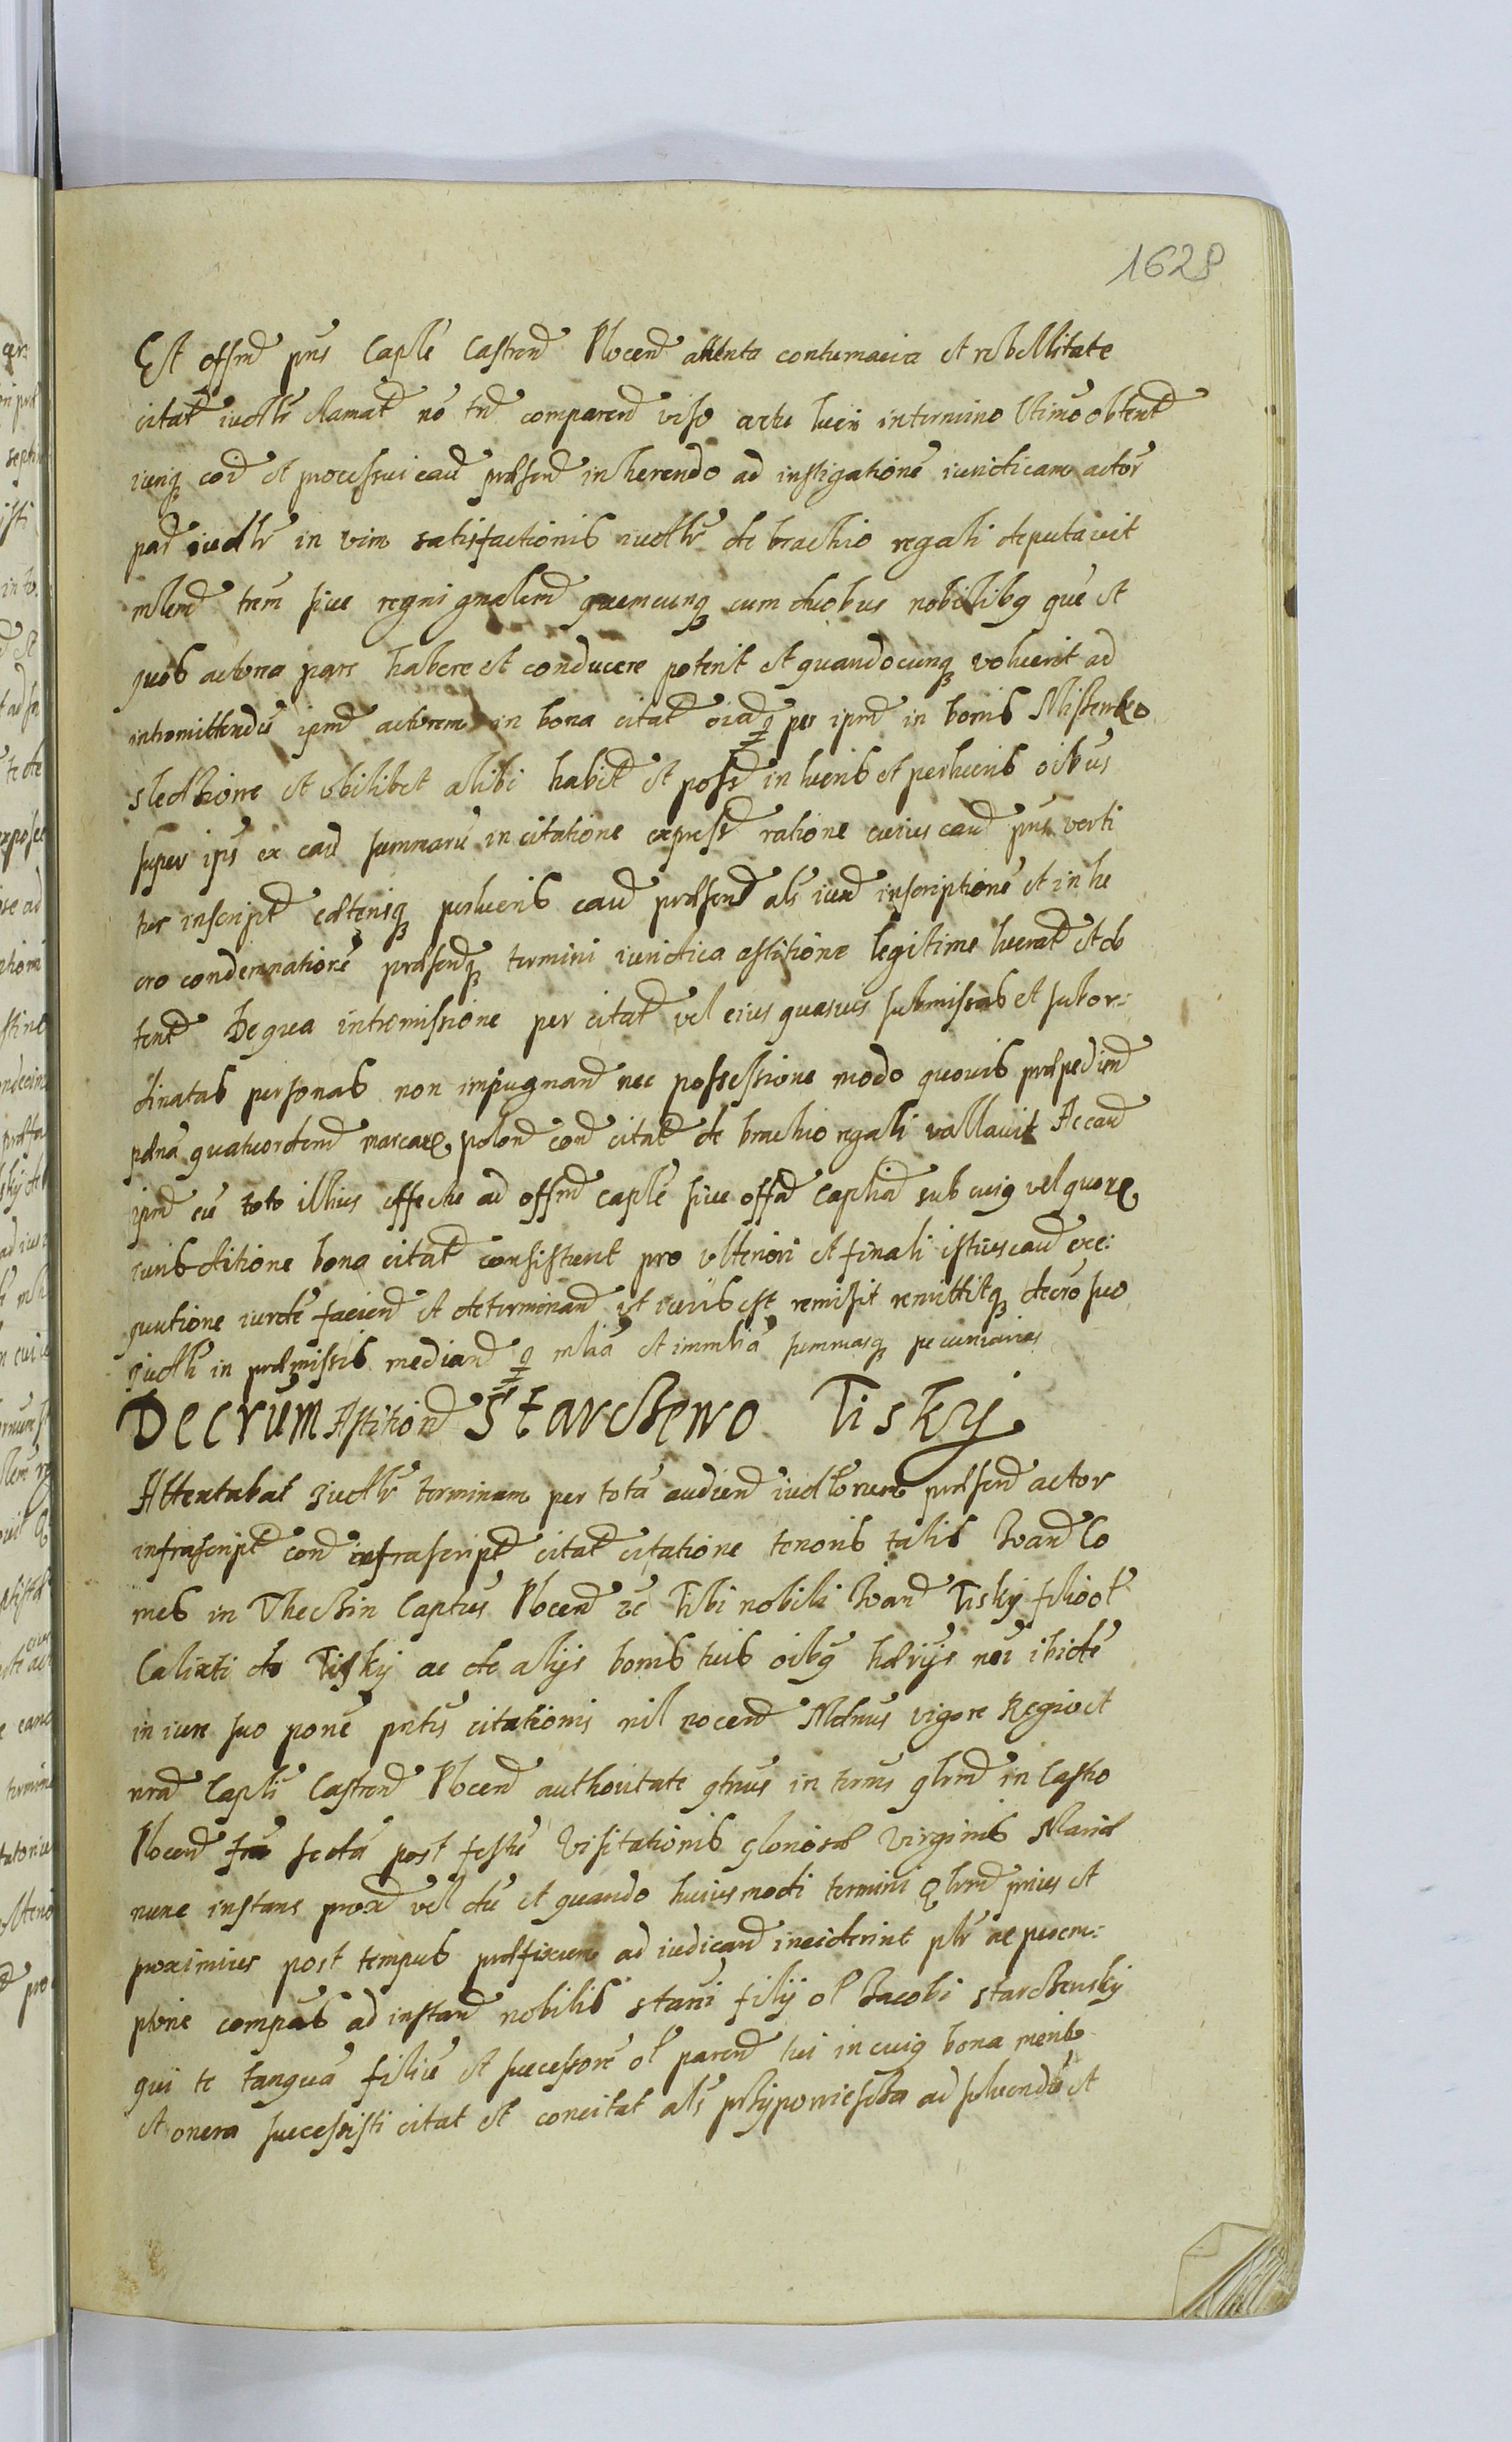 1628
Est offm pns Caple Castren Plocen attenta contumacia et rebellitate
citat iudlr clamat nō tn comparen viso actu lucri in termino Vltimo obtent
iurisq cod et processui caus præsen inherendo ad instigationē iuridicam actor
par iudlr in vim satisfactionis iudlr de brachio regali deputavit
mlem trem sive regni gnalem quemcunq cum duobus nobilibq quē et
quos actorea pars habere et conducere poterit et quandocunq voluerit ad
intromittendū ipm actorem in bona citat oia q per ipm in bonis Misſewko
sledzione et vbilibet alibi habit et poss in lucris et perlucris oibus
super ips ex caus summarū in citatione express ratione cuius caus pns verti
tur inscript cæterisq perlucris caus præsen als iuxa inscriptionē et in lu
cro condemnationē præsenq termini iuridica astitione legitime lucrat et ob
tent De qua intromissione per citat vel eius quasvis submissas et subor:
dinatas personas non impugnan nec possessione modo quovis præpedien
pæna quatuordem marcarum polon con citat de brachio regali vallavit Ac caus
ipm cū toto illius effectu ad offm caple sive offa caplia sub cuiq vel quorum
iurisditione bona citat consistunt pro vlteriori et finali istius caus exe:
quutione iurde facien et determinan vt iuris est remisit remittitq decro suo
iudli in præmissis median q mlia et immlia summasq pecuniarias
Decrum Astition Starczewo Tisky
Attentabat iudlr terminum per totā audien iudlorum præsen actor
infrascript con infrascript citat citatione tenoris talis Ioan Co
mes in Theczin Captus Plocen etc Tibi nobili Ioan Tisky filio ol
Calixti de Tisky ac de alijs bonis tuis oibq hærijs nri ibidē
in iure suo ponē pntis citationis nil nocen Mdmus vigore Regio et
nra Capli Castren Plocen authoritate qtnus in termis qlrm in Castro
Plocen fra sexta post festū Visitationis gloriosæ Virginis Mariæ
nunc instans prox vel dū et quando huiusmodi termini qlrm prius et
proximius post tempus præfixum ad iudican inciderint plr ac perem:
ptorie compas ad instan nobilis Stani filij ol Iacobi Starczewsky
qui te tanquā filiū et successorē ol paren tui in cuiq bona merito
et onera successisti citat et concitat als przypowiescza ad solvendū et